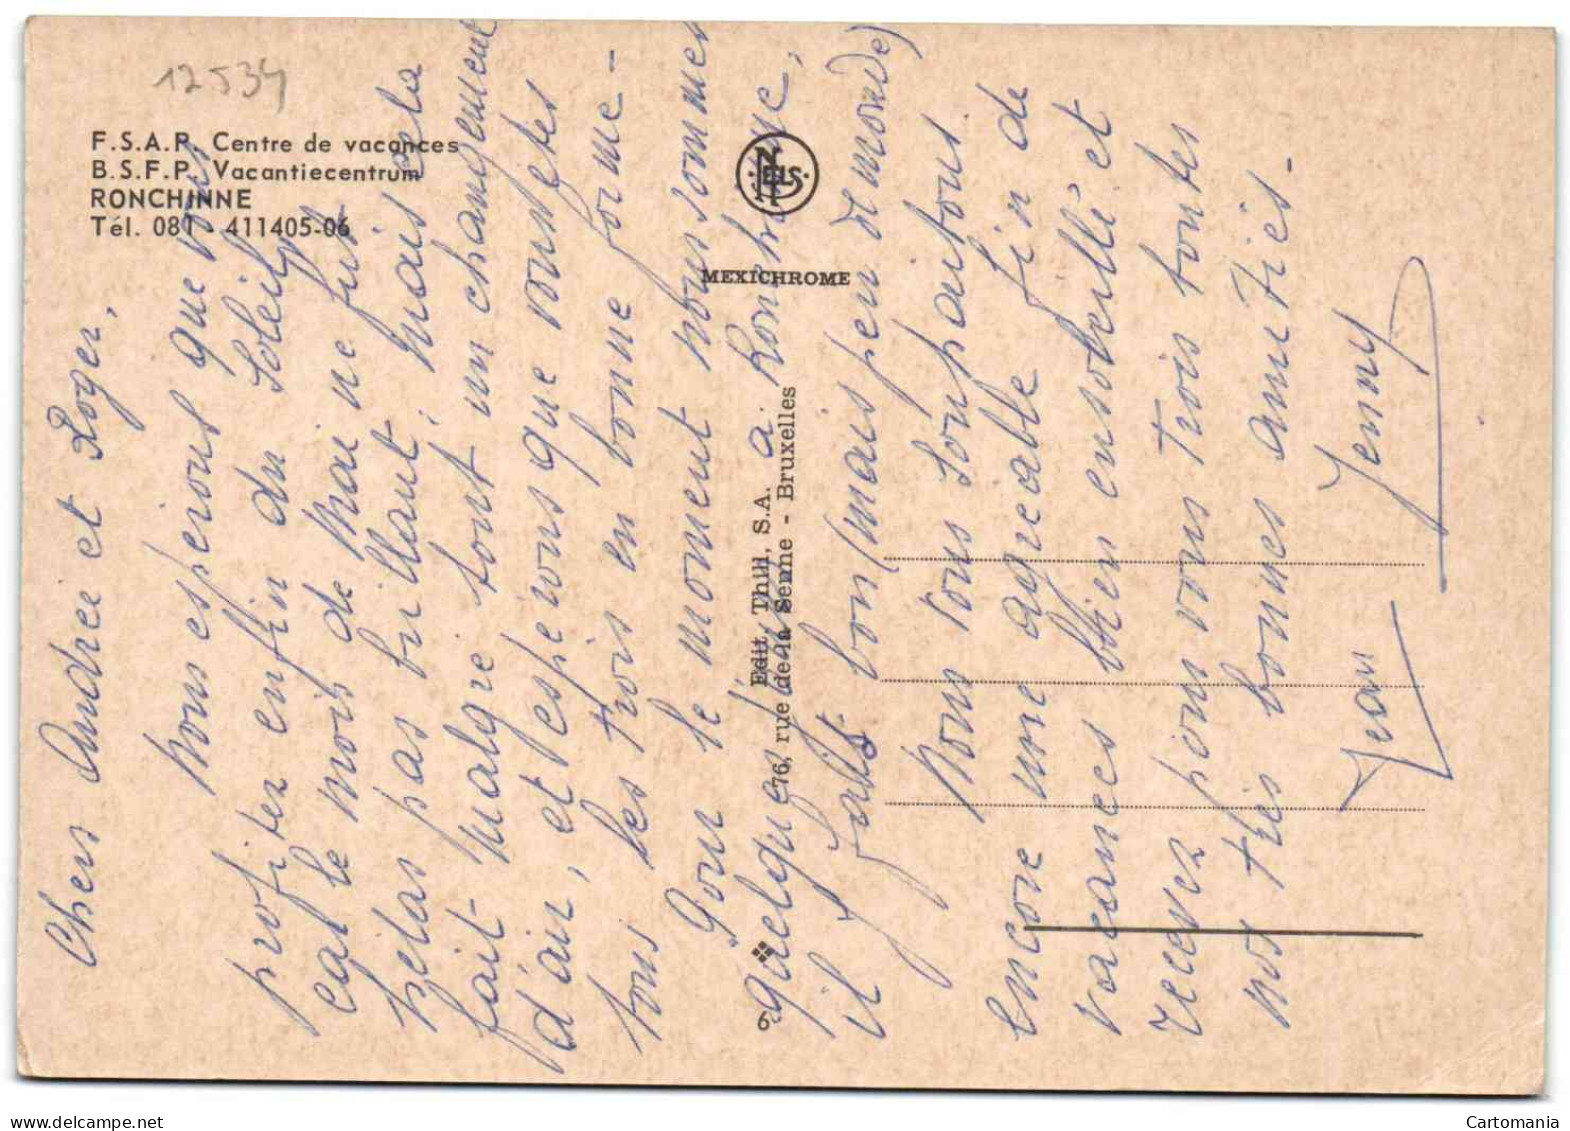 12534
F.S.A.P. Centre de vacances
B.S.F.P. Vacantiecentrum
RONCHINNE
Tél. 081 - 411405-06
NELS
MEXICHROME
Edit. Thill, S.A.
76, rue de la Senne - Bruxelles
Chers Andrée et Roger,
Nous espérons que vous
profitez enfin du soleil,
car le mois de Mai ne fut
hélas pas brillant, mais cela
fait malgré tout un changement
d'air, et espérons que vous êtes
tous les trois en bonne forme -
Pour le moment nous sommes
quelques jours à Ronchinne,
il fait bon (mais peu de monde)
Nous vous souhaitons
encore une agréable fin de
vacances bien ensoleillé et
recevez pour vous trois toutes
nos très bonnes amitiés -
Jean Jenny
Cartomania